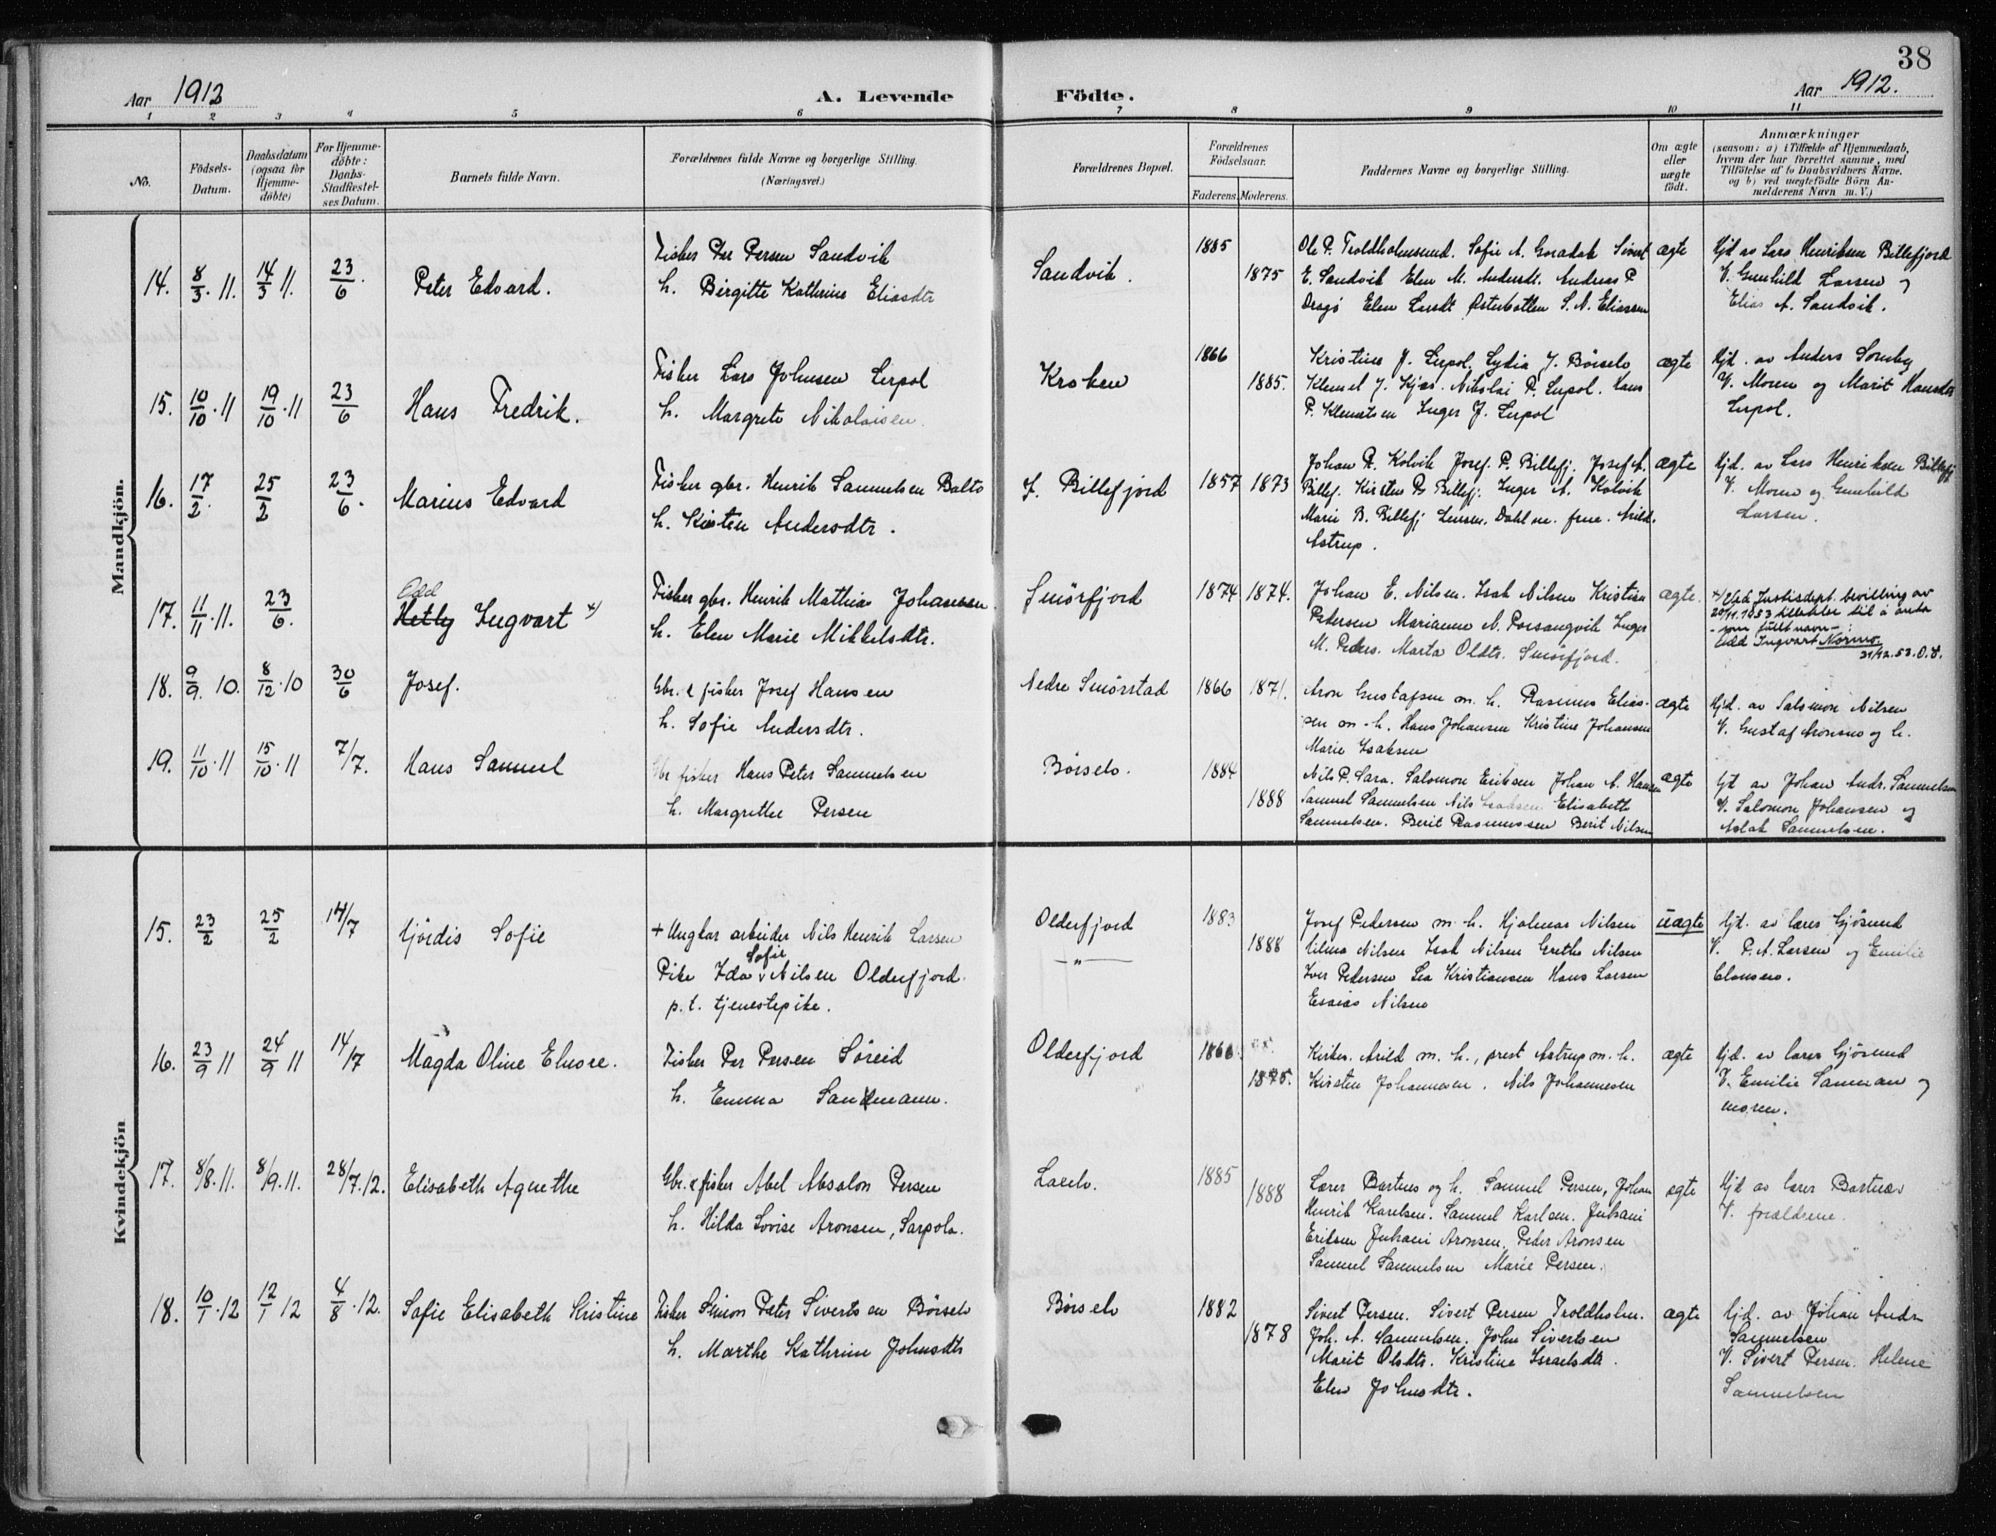 38
Aar 1912
A. Levende Födte.
Aar 1912.
1 2 3 4 5 6 7 8 9 10 11
No.
Födsels-
Datum.
Daabsdatum
(ogsaa for
Hjemme-
döbte)
For Hjemme-
döbte:
Daabs-
Stadfæstel-
ses Datum.
Barnets fulde Navn.
Forældrenes fulde Navne og borgerlige Stilling.
(Næringsvei.)
Forældrenes Bopæl.
Forældrenes
Födselsaar.
Faderens. Moderens.
Faddernes Navne og borgerlige Stilling.
Om ægte
eller
uægte
födt.
Anmærkninger
(saasom: a) i Tilfælde af Hjemmedaab,
hvem der har forrettet samme, med
Tilföielse af to Daabsvidners Navne,
og b) ved uægtefödte Börn An-
melderens Navn m. V.)
Mandkjön.
14. 8/3. 11. 14/3 11. 23/6. Peter Edvard.
Fisker Per Persen Sandvik
h. Birgitte Kathrine Eliasdtr
Sandvik.
1885 1875
Ole P. Troldholmsund. Sofie A. Sivert
E. Sandvik Elen M. Andersdt. Andreas P
Elen Østerbotten S. N. Eliassen
ægte
Hjd av Lars Henriksen Billefjord
V. Gunhild Larsen og
Elias A. Sandvik.
15. 10/10. 11 19/10. 11 23/6 Hans Fredrik.
Fisker Lars Johnsen Lerpol
h. Margrete Nikolaisen
Kroken
1866 1885.
Kristine J. Lerpol, Lydia J. Børselv
Klemet J. Kjæs. Nikolai P. Lerpol. Hans
P. Klemetsen Inger J. Lerpol
ægte
Hjd. av Anders Somby
V. Moren og Marit Hansdtr
Lerpol.
16. 17/2. 25/2 23/6. Marius Edvard
Fisker gbr. Henrik Samuelsen Balto
h. Kirsten Andersdtr.
J. Billefjord
1857 1873
Johan P. Kolvik Josef. P. Billefj. Josef A.
Billef. Kirsten P. Billefj. Inger A. Kolvik
Marie B. Billefj Dahl frue. Arild.
Astrup.
ægte
Hjd. av Lars Henriksen Billefj
V. Moren og Gunhild
Larsen.
17. 11/11. 11. 23/6. Odd
Hetly Ingvart x)
Fisker gbr. Henrik Mathias Johansen.
h. Elen Marie Mikkelsdtr.
Smörfjord
1874 1874.
Johan E. Nilsen. Isak Nilsen Kristian
Pedersen Marianne N. Porsangvik Inger
M. Peders. Marta Oldtr. Smörfjord.
ægte.
x) Justisdept. bevilling av
20/11.1953 tillatelse til å anta
- som fullt navn - :
Odd Ingvart Normo.
31/12.53. O.V.
18. 9/9. 10. 8/12. 10 30/6 Josef.
Gbr. & fisker Josef Hansen
h. Sofie Andersdtr.
Nedre Smörstad
1866 1871.
Aron Gustafsen m. h. Rasmus Elias-
sen m. h. Hans Johansen Kristine Johansen
Marie Isaksen
ægte
Hjd. av Salomon Nilsen
V. Gustaf Aronsen og h.
19. 11/10. 11 15/10. 11 7/7. Hans Samuel
Gbr fisker Hans Peter Samuelsen
h. Margrethe Persen
Börselv.
1884 1888
Nils P. Sara. Salomon Eriksen Johan A. Hansen
Samuel Samuelsen Nils Isaksen Elisabeth
Samuelsen. Berit Rasmussen Berit Nilsen
ægte
Hjd av Johan Andr. Samuelsen
V. Salomon Johansen og
Aslak Samuelsen.
Kvindekjön
15. 23/2 25/2 14/7 Hjördis Sofie
+ Ungkar arbeider Nils Henrik Larsen
Sofie
Pike Ida v Nilsen Olderfjord.
p. t. tjenestepike.
Olderfjord
— " —
1883 1888
Josef Pedersen m. h. Hjalmar Nilsen
Vilma Nilsen Isak Nilsen Grethe Nilsen
Iver Pedersen Lea Kristiansen Hans Larsen
Esaias Nilsen
uægte
Hjd. av lærer Gjøsund
V. P. A. Larsen og Emilie
Clausen.
16. 23/9 11 24/9 11 14/7 Magda Oline Elnore.
Fisker Per Persen Søreid
h. Emma Sandmann.
Olderfjord
1860 1875.
Kirkes. Arild m. h., prest Astrup m. h.
Kirsten Johannesen. Nils Johannesen
ægte
Hjd. av lærer Gjøsund
V. Emilie Samman og
moren.
17. 8/8. 11. 8/9. 11. 28/7. 12. Elisabeth Agnethe
Gbr. & fisker Abel Absalon Persen
h. Hilda Lovise Aronsen, Sarpola.
Laxelv.
1885 1888
Lærer Bartnes og h. Samuel Persen, Johan
Henrik Karelsen. Samuel Karlsen. Juhani
Eriksen Juhani Aronsen, Peder Aronsen
Samuel Samuelsen Marie Persen.
ægte
Hjd av lærer Bartnæs
V. forældrene.
18. 10/1. 12 12/1 12 4/8. 12. Sofie Elisabeth Kristine
Fisker Simon Peter Sivertsen Børselv
h. Marthe Kathrine Johnsdtr
Börselv
1882 1878
Sivert Persen. Sivert Persen Troldholm.
Joh. A. Samuelsen. John Sivertsen
Marit Olsdtr. Kristine Israelsdtr.
Elen Johnsdtr.
ægte
Hjd. av Johan Andr
Samuelsen
V. Sivert Persen. Helene
Samuelsen